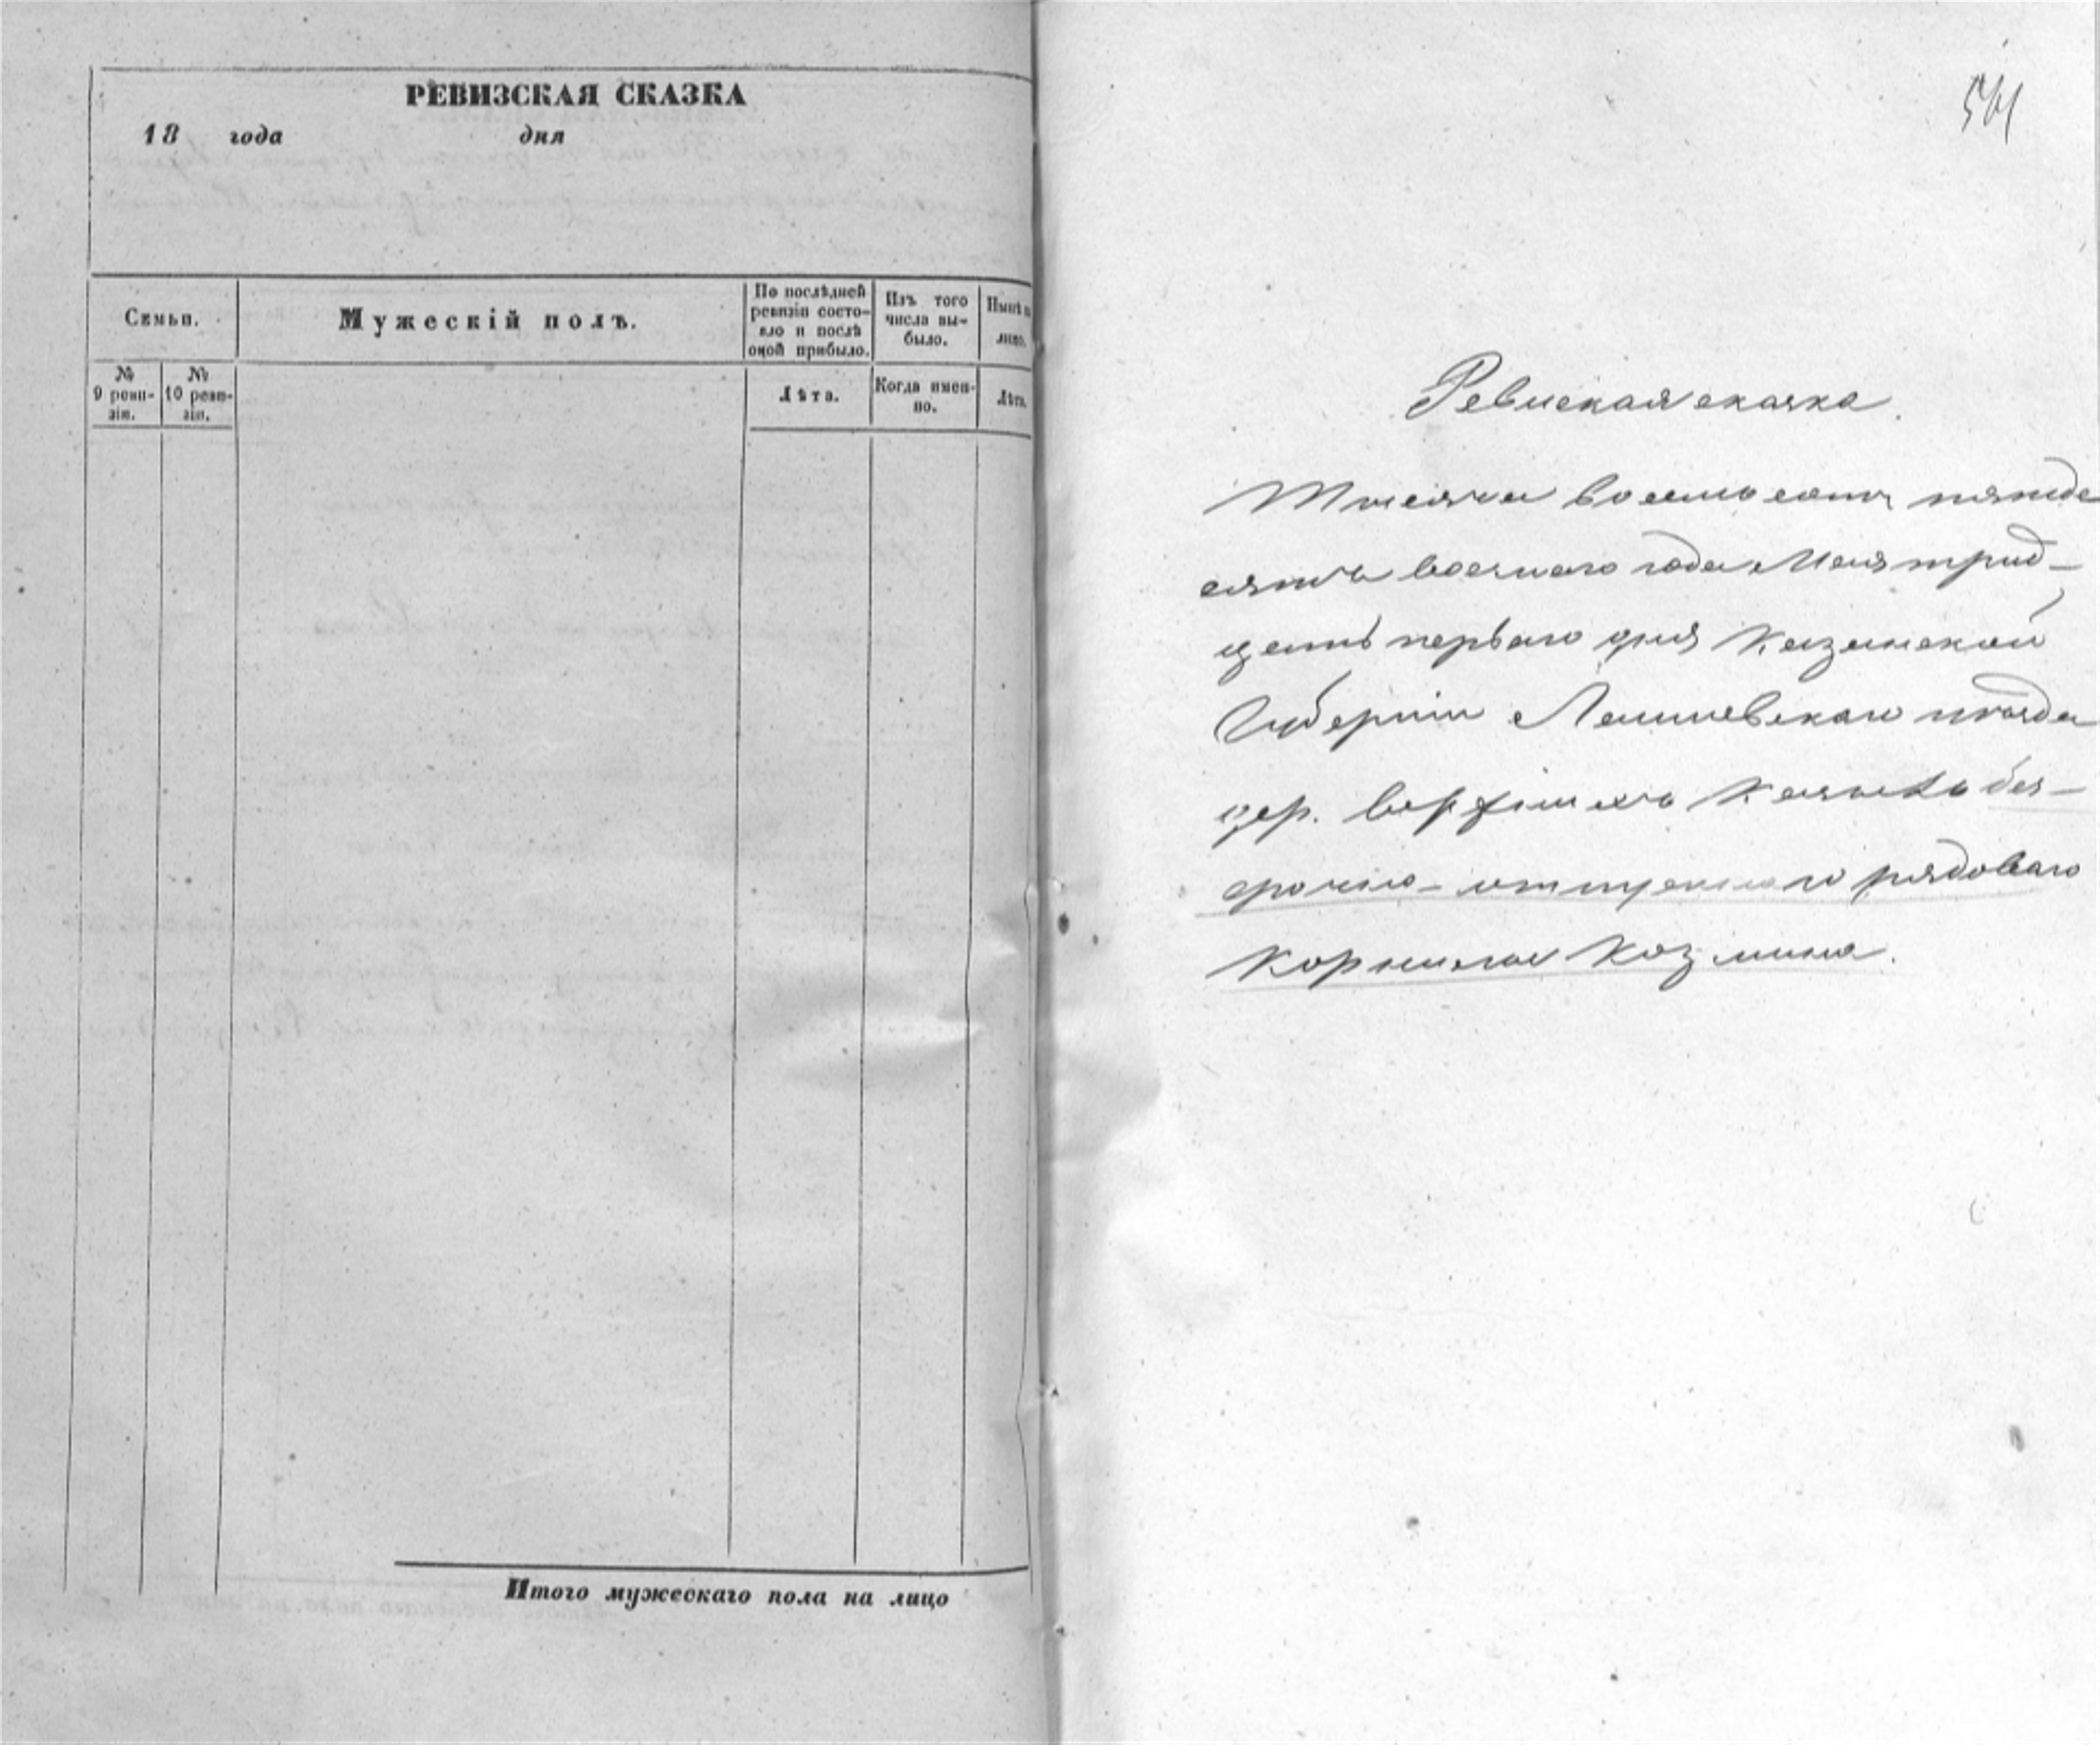 РЕВИЗСКАЯ СКАЗКА
18 года дня
Семьи.
Мужескій полъ.
По послѣдней ревизіи состояло и послѣ оной прибыло.
Изъ того числа выбыло.
Нынѣ на лицо.
№ 9 ревизіи.
№ 10 ревизіи.
Лѣта.
Когда именно.
Лѣта.
Итого мужескаго пола на лицо
541
Ревиская сказка.
Тысяча восемь сотъ пятьде
сятъ восмаго года Мая трид-
цать перваго дня Казанской
Губерніи Лаишевскаго уѣзда
дер. Козяковъ без-
срочно-отпускнаго рядоваго
Корнила Козмина.